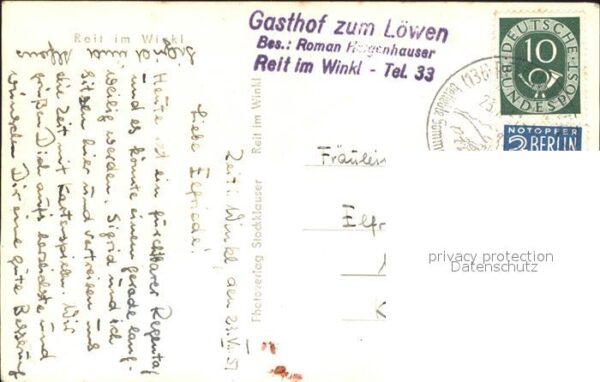 Reit im Winkl
Gasthof zum Löwen
Bes.: Roman
Reit im Winkl - Tel. 33
DEUTSCHE
BUNDESPOST
10
NOTOPFER
2 BERLIN
(13b)
Reit im Winkl, den
Liebe Elfriede!
Heute ist ein furchtbarer Regentag
und es könnte einem gerade lang-
weilig werden. Sigrid und ich
sitzen hier und vertreiben uns
die Zeit mit Kartenspielen. Wir
grüßen Dich aufs herzlichste und
wünschen Dir eine gute Besserung
Photoverlag Stocklauser Reit im Winkl
Fräulein
Elfr
privacy protection
Datenschutz